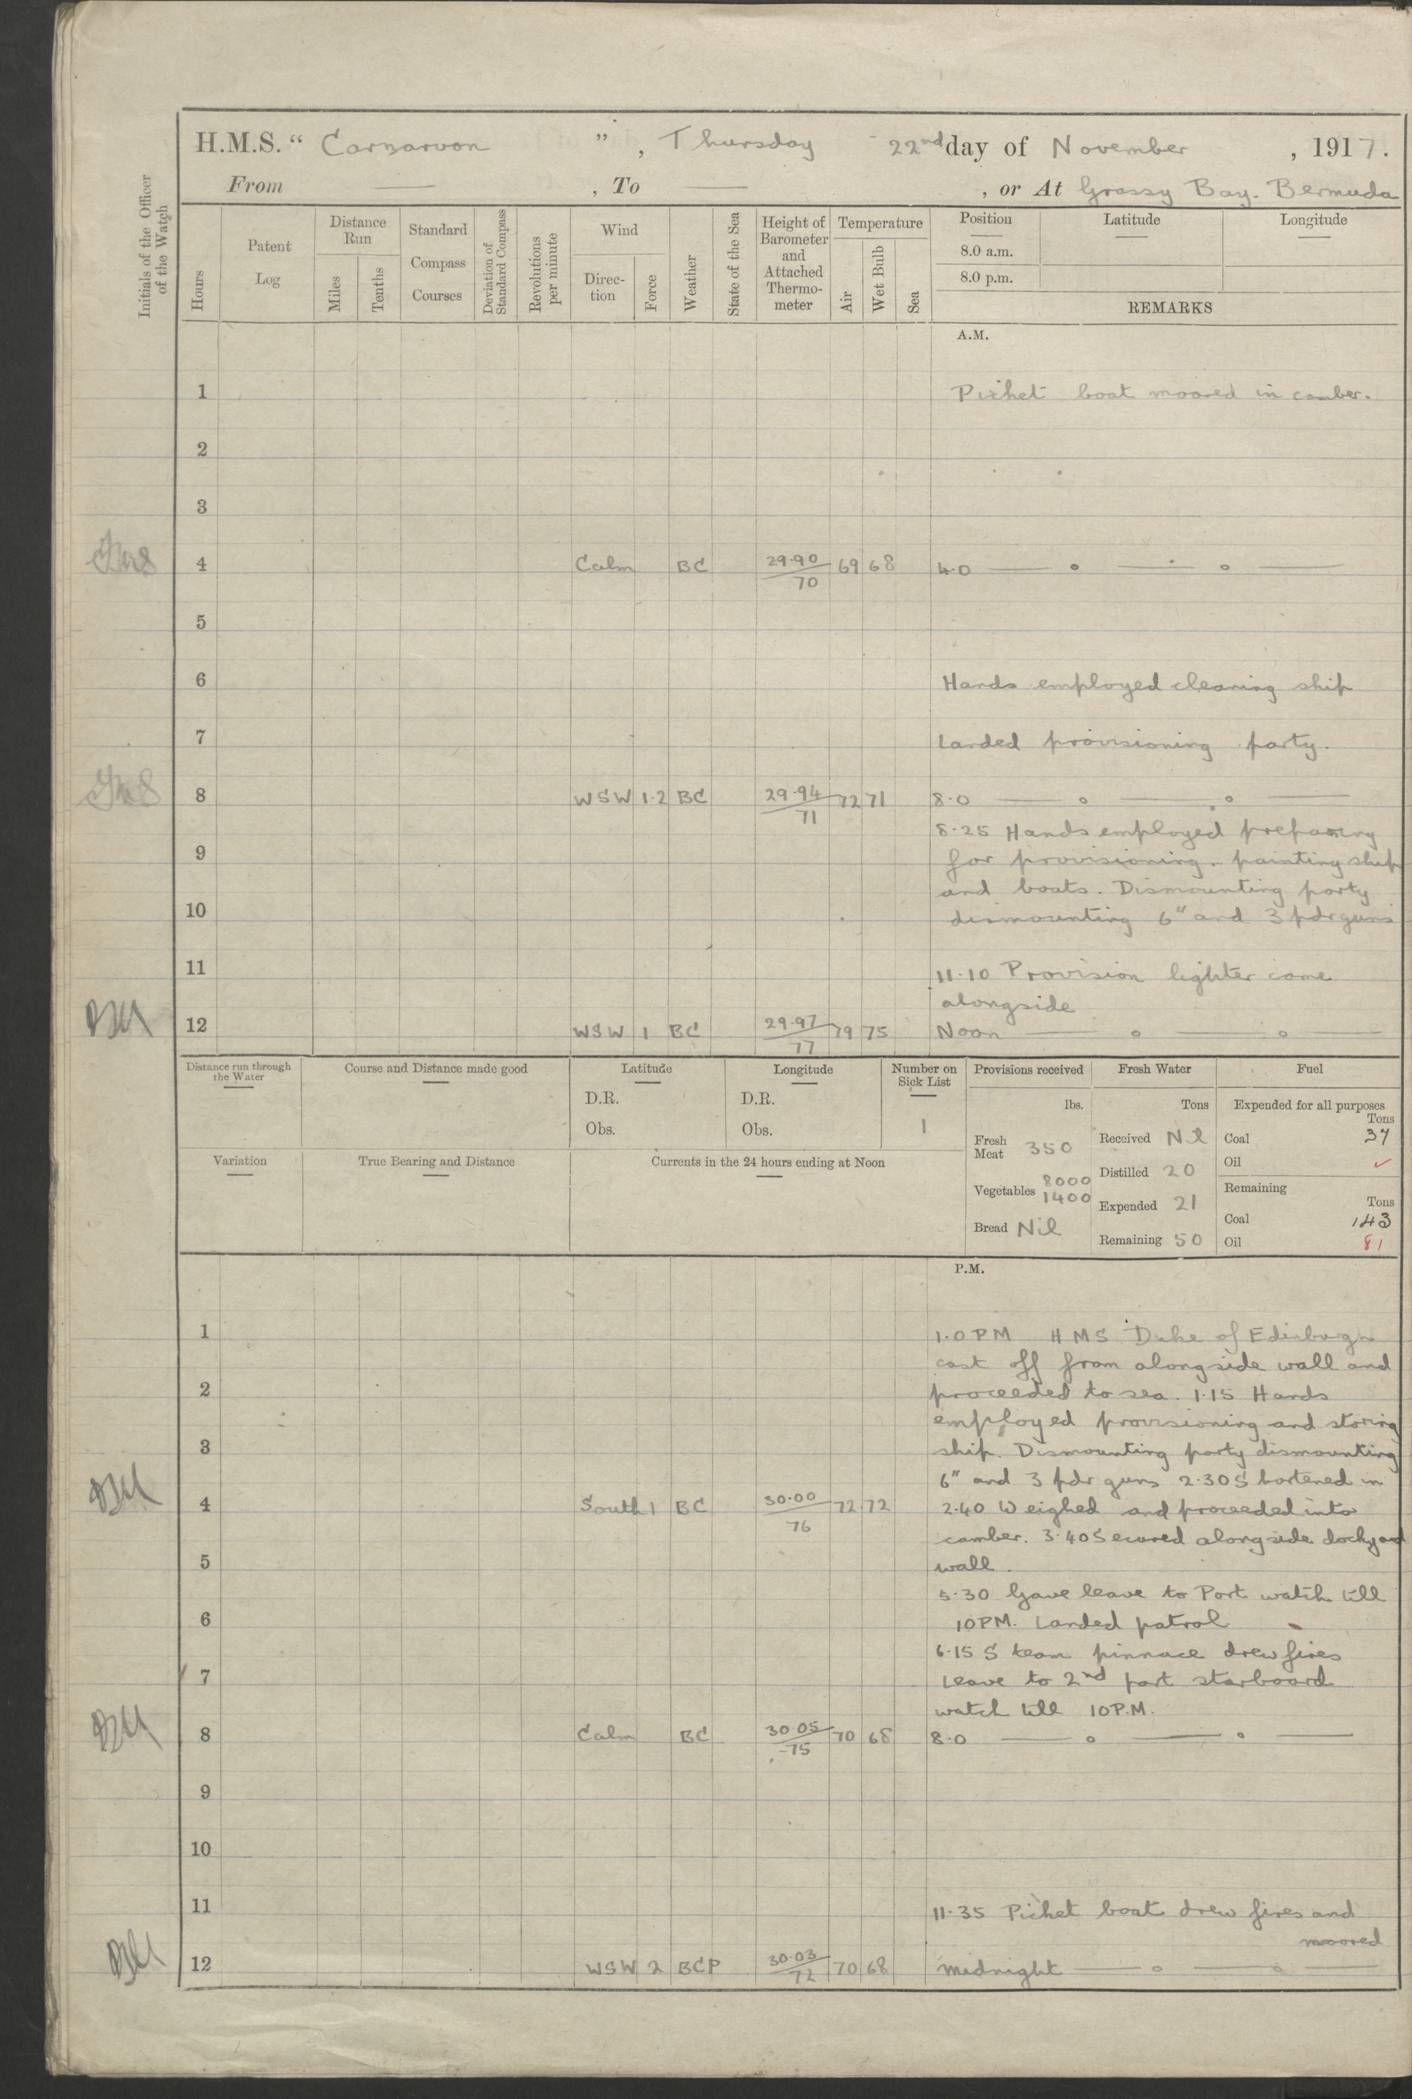 H.M.S. “ Carnarvon ” , Thursday 22nd day of November , 1917.
From — , To — , or At Grassy Bay. Bermuda
Initials of the Officer of the Watch
Hours
Patent Log
Distance Run
Miles
Tenths
Standard Compass Courses
Deviation of Standard Compass
Revolutions per minute
Wind
Direc-tion
Force
Weather
State of the Sea
Height of Barometer and Attached Thermo-meter
Temperature
Air
Wet Bulb
Sea
Position
Latitude
Longitude
8.0 a.m.
8.0 p.m.
REMARKS
A.M.
1 Picket boat moored in camber.
2
3
4 Calm BC 29.90/70 69 68 4.0 — o — o —
5
6 Hands employed cleaning ship
7 Landed provisioning party.
8 WSW 1.2 BC 29.94/71 72 71 8.0 — o — o —
8.25 Hands employed preparing
9 for provisioning. painting ship
and boats. Dismounting party
10 dismounting 6" and 3 pdr guns
11 11.10 Provision lighter came
alongside
12 WSW 1 BC 29.97/77 79 75 Noon — o — o —
Distance run through the Water
Course and Distance made good
Latitude
D.R.
Obs.
Longitude
D.R.
Obs.
Number on Sick List
1
Variation
True Bearing and Distance
Currents in the 24 hours ending at Noon
Provisions received
lbs.
Fresh Meat 350
Vegetables 8000
1400
Bread Nil
Fresh Water
Tons
Received Nil
Distilled 20
Expended 21
Remaining 50
Fuel
Expended for all purposes
Tons
Coal 37
Oil ✓
Remaining
Tons
Coal 143
Oil 81
P.M.
1 1.0 PM HMS Duke of Edinburgh
cast off from alongside wall and
2 proceeded to sea. 1.15 Hands
employed provisioning and storing
3 ship. Dismounting party dismounting
6" and 3 pdr guns 2.30 Shortened in
4 South 1 BC 30.00/76 72 72 2.40 Weighed and proceeded into
camber. 3.40 Secured alongside dockyard
5 wall.
5.30 Gave leave to Port watch till
6 10PM. Landed patrol
6.15 Steam pinnace drew fires
7 Leave to 2nd part starboard
watch till 10P.M.
8 Calm BC 30.05/75 70 68 8.0 — o — o —
9
10
11 11.35 Picket boat drew fires and
moored
12 WSW 2 BCP 30.03/72 70 68 Midnight — o — o —